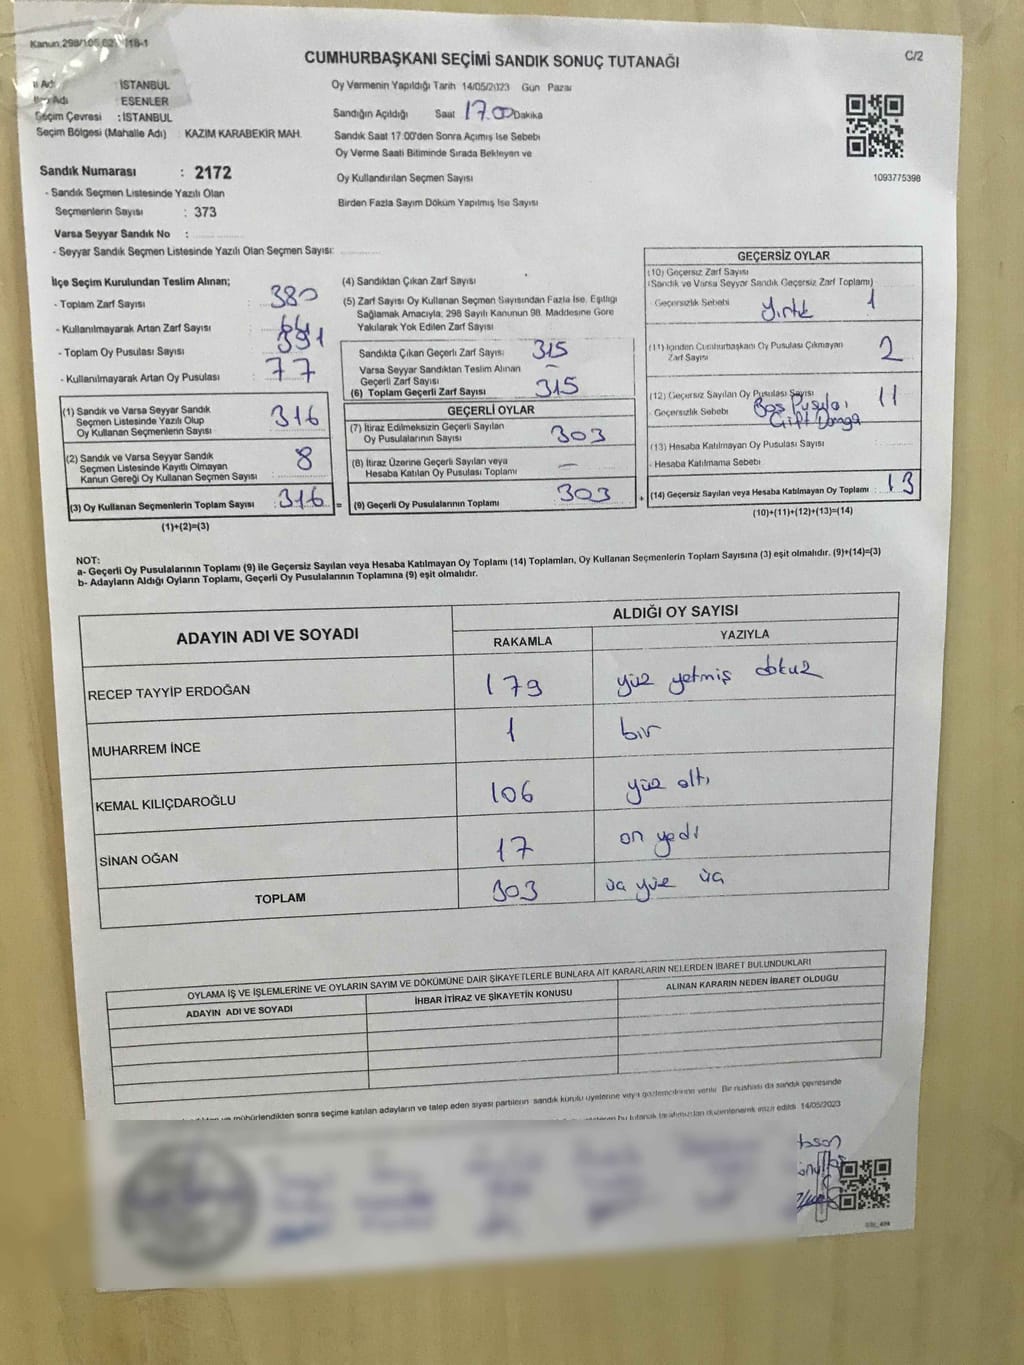 CUMHURBAŞKANI SEÇİMİ SANDIK SONUÇ TUTANAĞI
C/2
: İSTANBUL
: ESENLER
Seçim Çevresi : İSTANBUL
Seçim Bölgesi (Mahalle Adı) : KAZIM KARABEKİR MAH.
Sandık Numarası : 2172
- Sandık Seçmen Listesinde Yazılı Olan
Seçmenlerin Sayısı : 373
Varsa Seyyar Sandık No :
- Seyyar Sandık Seçmen Listesinde Yazılı Olan Seçmen Sayısı:
Oy Vermenin Yapıldığı Tarih 14/05/2023 Gün Pazar
Sandığın Açıldığı Saat 17.00 Dakika
Sandık Saat 17:00'den Sonra Açımış Ise Sebebi
Oy Verme Saati Bitiminde Sırada Bekleyen ve
Oy Kullandırılan Seçmen Sayısı
Birden Fazla Sayım Döküm Yapılmış Ise Sayısı
1093775398
İlçe Seçim Kurulundan Teslim Alınan;
- Toplam Zarf Sayısı : 380
- Kullanılmayarak Artan Zarf Sayısı : 64
- Toplam Oy Pusulası Sayısı : 391
- Kullanılmayarak Artan Oy Pusulası : 77
(1) Sandık ve Varsa Seyyar Sandık
Seçmen Listesinde Yazılı Olup
Oy Kullanan Seçmenlerin Sayısı : 316
(2) Sandık ve Varsa Seyyar Sandık
Seçmen Listesinde Kayıtlı Olmayan
Kanun Gereği Oy Kullanan Seçmen Sayısı : 8
(3) Oy Kullanan Seçmenlerin Toplam Sayısı : 316
(1)+(2)=(3)
(4) Sandıktan Çıkan Zarf Sayısı
(5) Zarf Sayısı Oy Kullanan Seçmen Sayısından Fazla Ise, Eşitliği
Sağlamak Amacıyla; 298 Sayılı Kanunun 98. Maddesine Göre
Yakılarak Yok Edilen Zarf Sayısı
Sandıkta Çıkan Geçerli Zarf Sayısı : 315
Varsa Seyyar Sandıktan Teslim Alınan
Geçerli Zarf Sayısı –
(6) Toplam Geçerli Zarf Sayısı : 315
GEÇERLİ OYLAR
(7) İtiraz Edilmeksizin Geçerli Sayılan
Oy Pusulalarının Sayısı : 303
(8) İtiraz Üzerine Geçerli Sayılan veya
Hesaba Katılan Oy Pusulası Toplamı –
= (9) Geçerli Oy Pusulalarının Toplamı : 303
GEÇERSİZ OYLAR
(10) Geçersiz Zarf Sayısı
(Sandık ve Varsa Seyyar Sandık Geçersiz Zarf Toplamı) 1
- Geçersizlik Sebebi Yırtık
(11) İçinden Cumhurbaşkanı Oy Pusulası Çıkmayan
Zarf Sayısı 2
(12) Geçersiz Sayılan Oy Pusulası Sayısı 11
- Geçersizlik Sebebi Boş Pusula,
Çift Damga
(13) Hesaba Katılmayan Oy Pusulası Sayısı
- Hesaba Katılmama Sebebi
+ (14) Geçersiz Sayılan veya Hesaba Katılmayan Oy Toplamı : 13
(10)+(11)+(12)+(13)=(14)
NOT:
a- Geçerli Oy Pusulalarının Toplamı (9) ile Geçersiz Sayılan veya Hesaba Katılmayan Oy Toplamı (14) Toplamları, Oy Kullanan Seçmenlerin Toplam Sayısına (3) eşit olmalıdır. (9)+(14)=(3)
b- Adayların Aldığı Oyların Toplamı, Geçerli Oy Pusulalarının Toplamına (9) eşit olmalıdır.
ADAYIN ADI VE SOYADI
ALDIĞI OY SAYISI
RAKAMLA YAZIYLA
RECEP TAYYİP ERDOĞAN 179 yüz yetmiş dokuz
MUHARREM İNCE 1 bir
KEMAL KILIÇDAROĞLU 106 yüz altı
SİNAN OĞAN 17 on yedi
TOPLAM 303 üç yüz üç
OYLAMA İŞ VE İŞLEMLERİNE VE OYLARIN SAYIM VE DÖKÜMÜNE DAİR ŞİKAYETLERLE BUNLARA AİT KARARLARIN NELERDEN İBARET BULUNDUKLARI
ADAYIN ADI VE SOYADI İHBAR İTİRAZ VE ŞİKAYETİN KONUSU ALINAN KARARIN NEDEN İBARET OLDUĞU
mühürlendikten sonra seçime katılan adayların ve talep eden siyasi partilerin sandık kurulu üyelerine veya gözlemcilerine verilir. Bir nüshası da sandık çevresinde
bu tutanak tarafımızdan düzenlenerek imza edildi 14/05/2023